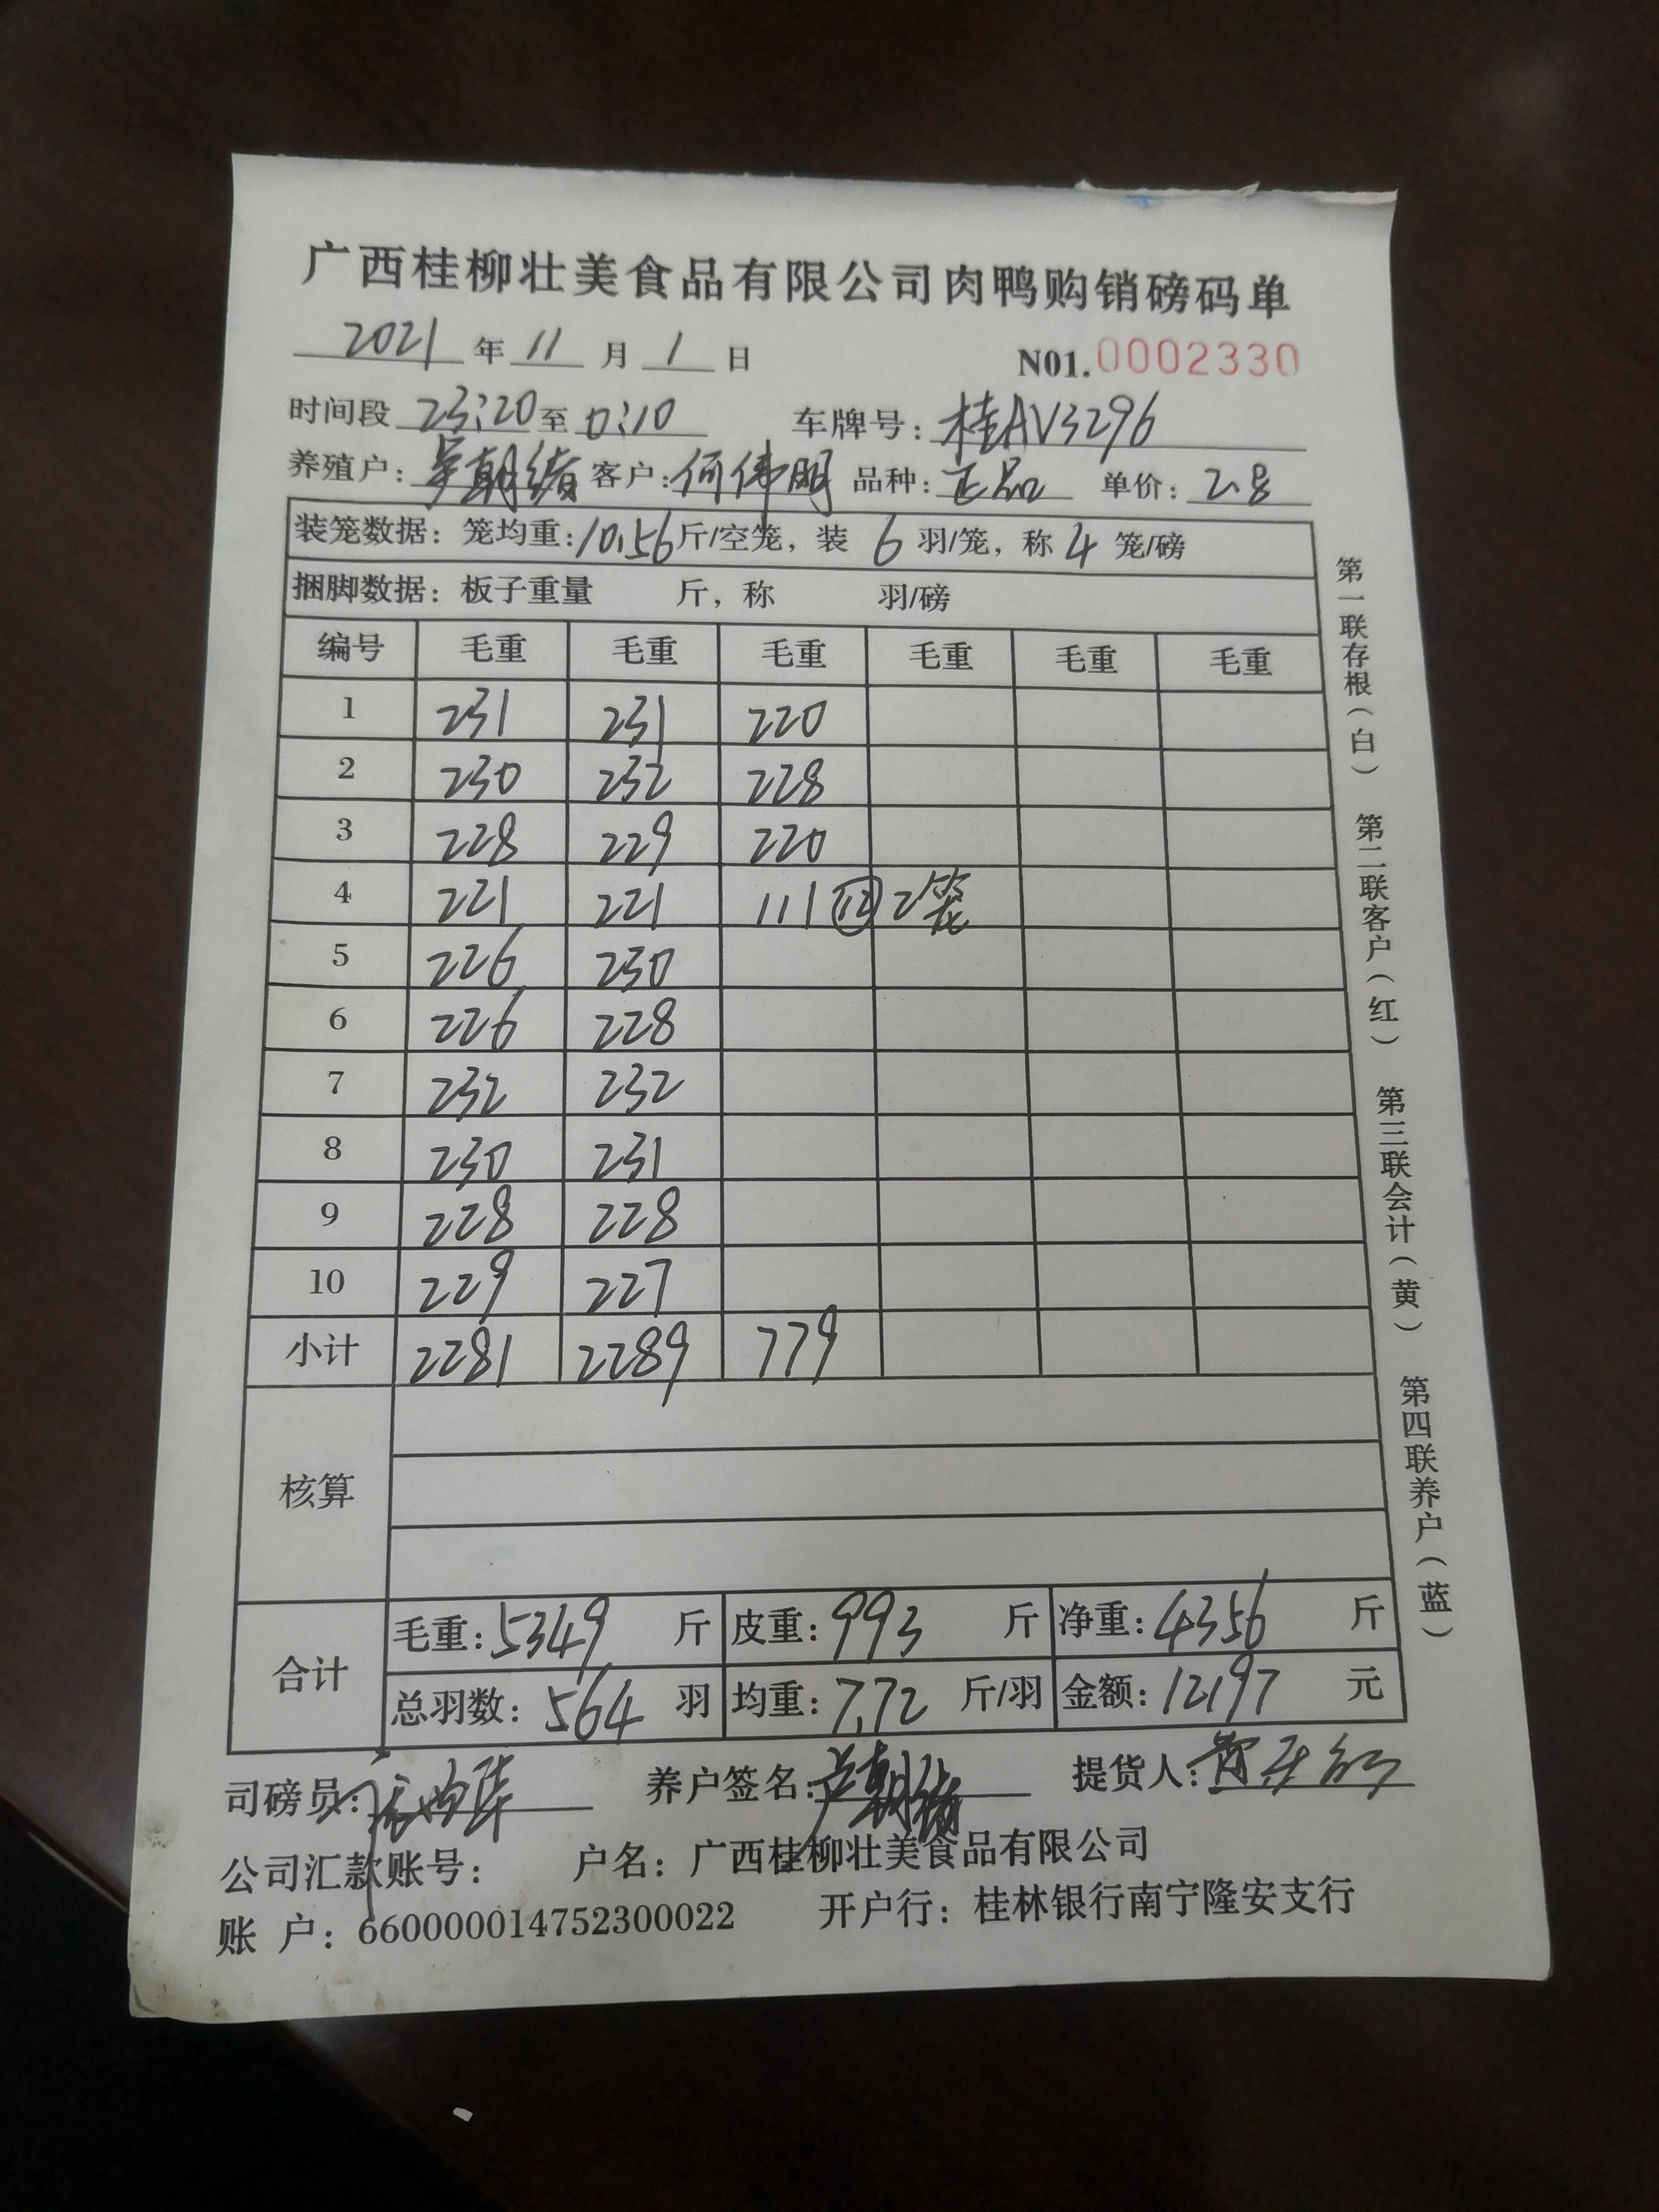 广西桂柳壮美食品有限公司肉鸭购销磅码单
2021 年 11 月 1 日 N01.0002330
时间段 23:20 至 0:10 车牌号: 桂AV3296
养殖户: 朝绪 客户: 何伟明 品种: 正品 单价: 2.8
装笼数据: 笼均重: 10.56 斤/空笼, 装 6 羽/笼, 称 4 笼/磅
捆脚数据: 板子重量 斤, 称 羽/磅
编号 毛重 毛重 毛重 毛重 毛重 毛重
1 231 231 220
2 230 232 228
3 228 229 220
4 221 221 111 12 2笼
5 226 230
6 226 228
7 232 232
8 230 231
9 228 228
10 229 227
小计 2281 2289 779
核算
合计 毛重: 5349 斤 皮重: 993 斤 净重: 4356 斤
总羽数: 564 羽 均重: 7.72 斤/羽 金额: 12197 元
司磅员: 养户签名: 朝绪 提货人:
公司汇款账号: 户名: 广西桂柳壮美食品有限公司
账 户: 660000014752300022 开户行: 桂林银行南宁隆安支行
第一联存根(白) 第二联客户(红) 第三联会计(黄) 第四联养户(蓝)